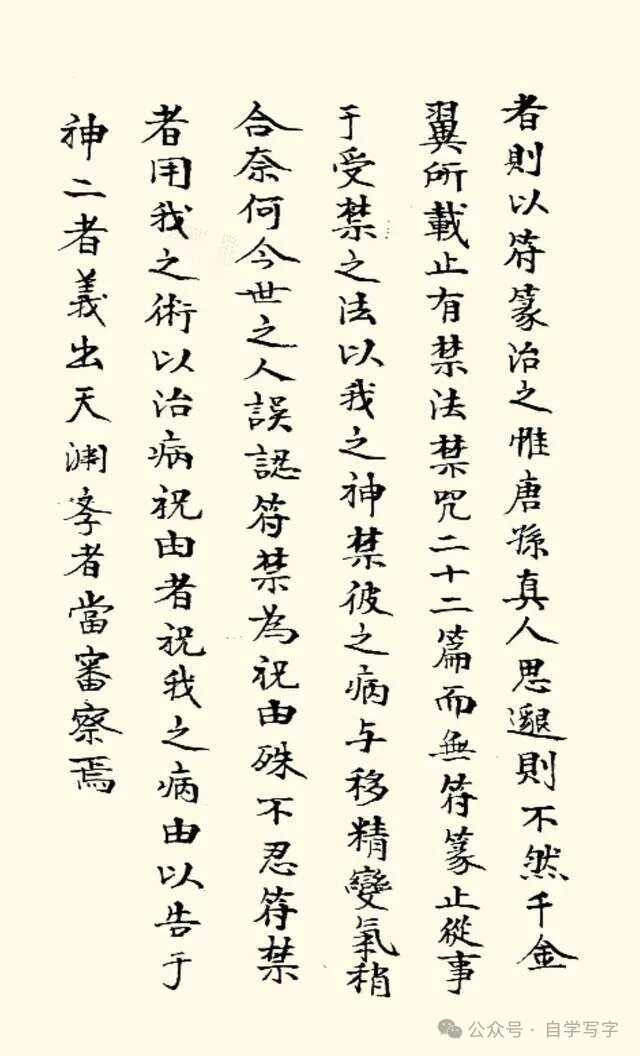 者則以符篆治之惟唐孫真人思邈則不然千金
翼所載止有禁法禁咒二十二篇而無符篆止從事
于受禁之法以我之神禁彼之病与移精變氣稍
合奈何今世之人誤認符禁為祝由殊不忍符禁
者用我之術以治病祝由者祝我之病由以告于
神二者義出天渊孛者當審察焉
公众号·自学写字